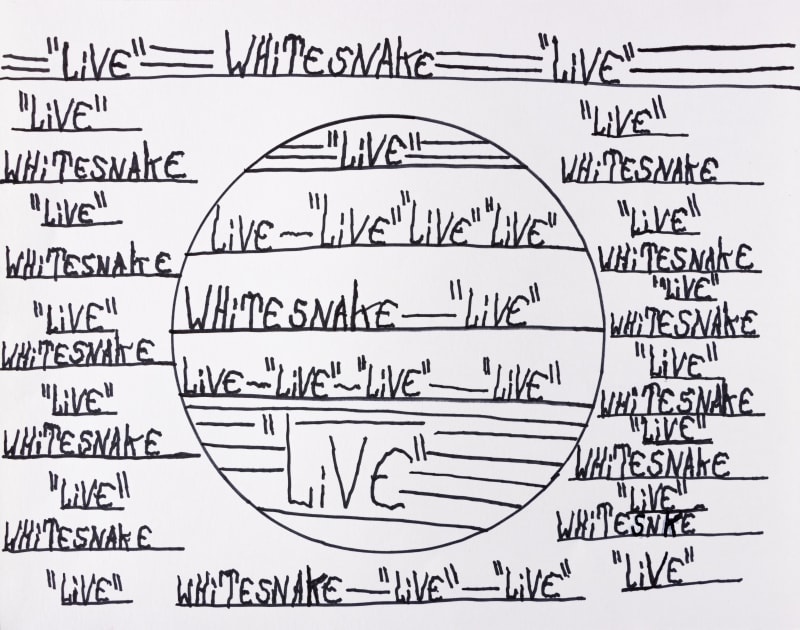 "LiVE" WHiTESNAKE "LiVE"
"LiVE"
WHiTESNAKE
"LiVE"
WHiTESNAKE
"LiVE"
WHiTESNAKE
"LiVE"
WHiTESNAKE
"LiVE"
WHiTESNAKE
"LiVE"
"LiVE"
LiVE — "LiVE" "LiVE" "LiVE"
WHiTESNAKE — "LiVE"
LiVE ~ "LiVE" ~ "LiVE" — "LiVE"
"LiVE"
WHiTESNAKE — "LiVE" — "LiVE"
"LiVE"
WHiTESNAKE
"LiVE"
WHiTESNAKE
"LiVE"
WHiTESNAKE
"LiVE"
WHiTESNAKE
"LiVE"
WHiTESNAKE
"LiVE"
WHiTESNKE
"LiVE"